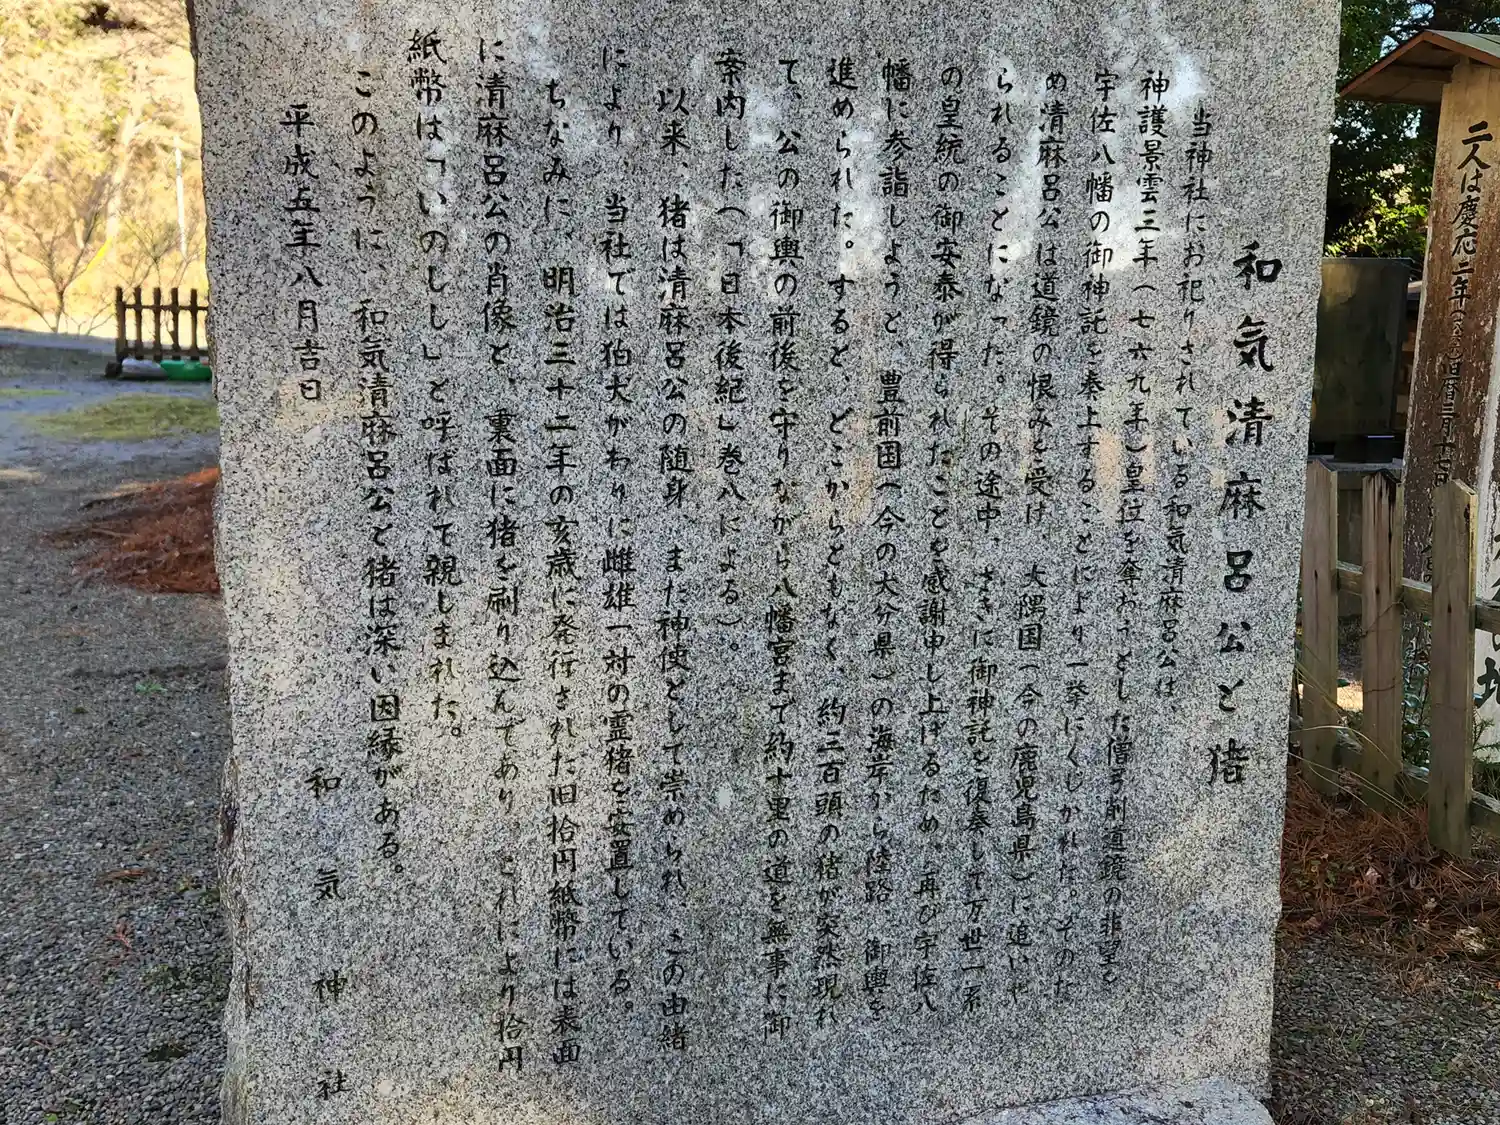 和気清麻呂公と猪
当神社にお祀りされている和気清麻呂公は、
神護景雲三年（七六九年）皇位を奪おうとした僧弓削道鏡の非望を
宇佐八幡の御神託を奏上することにより一挙にくじかれた。そのた
め清麻呂公は道鏡の恨みを受け、大隅国（今の鹿児島県）に追いや
られることになった。その途中、さきに御神託を復奏して万世一系
の皇統の御安泰が得られたことを感謝申し上げるため、再び宇佐八
幡に参詣しようと、豊前国（今の大分県）の海岸から陸路、御輿を
進められた。すると、どこからともなく、約三百頭の猪が突然現れ
て、公の御輿の前後を守りながら八幡宮まで約十里の道を無事に御
案内した（「日本後紀」巻八による）。
以来、猪は清麻呂公の随身、また神使として崇められ、この由緒
により、当社では狛犬がわりに雌雄一対の霊猪を安置している。
ちなみに、明治三十二年の亥歳に発行された旧拾円紙幣には表面
に清麻呂公の肖像と、裏面に猪を刷り込んであり、これにより拾円
紙幣は「いのしし」と呼ばれて親しまれた。
このように、和気清麻呂公と猪は深い因縁がある。
平成五年八月吉日
和気神社
二人は慶応二年
旧暦三月十七日